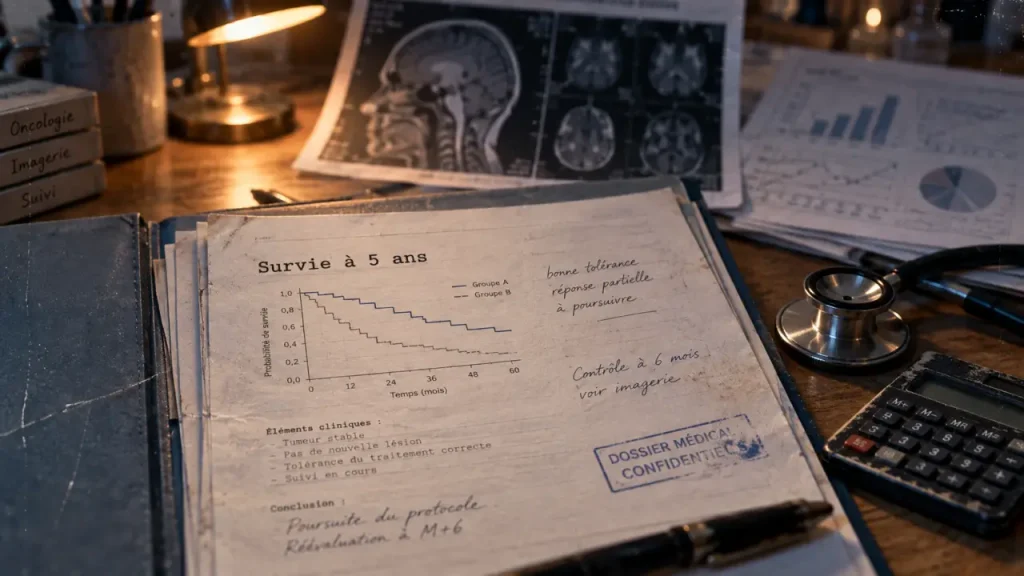 Oncologie
Imagerie
Suivi
Survie à 5 ans
Groupe A
Groupe B
Probabilité de survie
1,0
0,8
0,6
0,4
0,2
0,0
0 12 24 36 48 60
Temps (mois)
bonne tolérance
réponse partielle
à poursuivre
Contrôle à 6 mois
voir imagerie
Éléments cliniques :
- Tumeur stable
- Pas de nouvelle lésion
- Tolérance du traitement correcte
- Suivi en cours
DOSSIER MÉDICAL
Conclusion :
Poursuite du protocole
Réévaluation à M+6